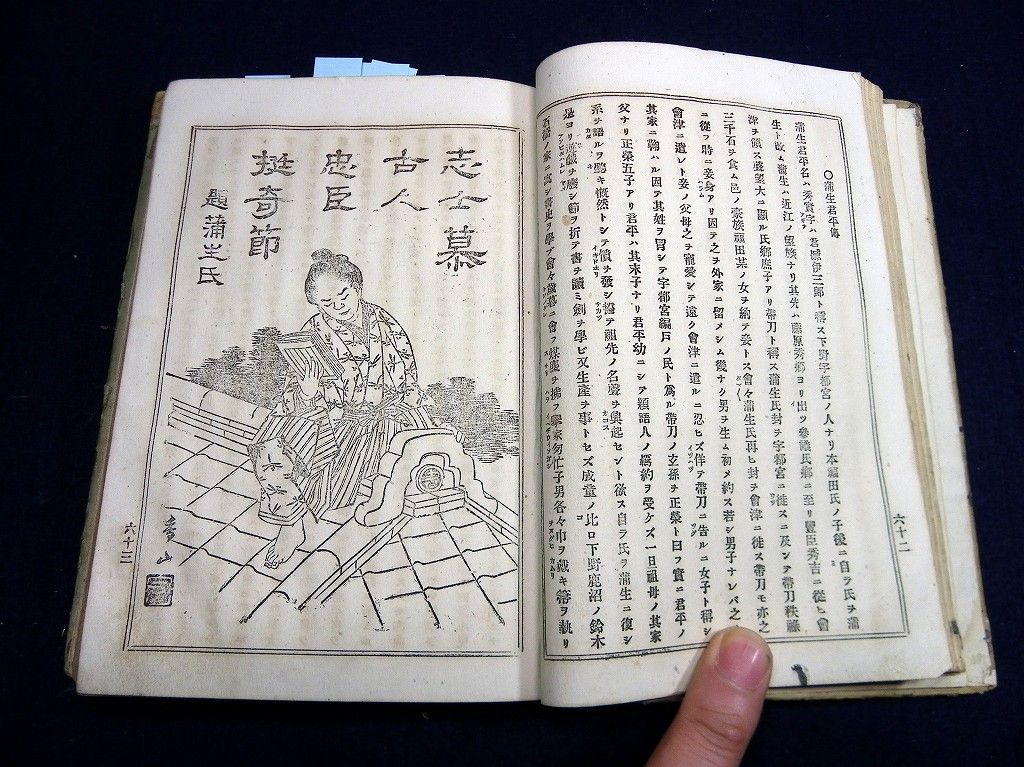 ○蒲生君平傳
蒲生君平名ハ秀實字ハ君臧伊三郎ト稱ス下野宇都宮ノ人ナリ本福田氏ノ子後ニ自ラ氏ヲ蒲
生ト改ム蒲生ハ近江ノ望族ナリ其先ハ藤原秀郷ヨリ出ツ參議氏郷ニ至リ豐臣秀吉ニ從ヒ會
津ヲ領ス聲望大ニ顯ル氏郷庶子アリ帶刀ト稱ス蒲生氏封ヲ宇都宮ニ徙スニ及ンテ帶刀秩祿
三千石ヲ食ム邑ノ豪族福田某ノ女ヲ納テ妾トス會々蒲生氏再ヒ封ヲ會津ニ徙ス帶刀モ亦之
ニ從フ時ニ妾身アリ因テ之ヲ外家ニ留メシム後チク男ヲ生ム初メ約ス若シ男子ナレバ之
會津ニ遣レト妾ノ父母之ヲ寵愛シテ遠ク會津ニ遣ルニ忍ヒズ佯テ帶刀ニ告ルニ女子ト稱シ
其家ニ鞠ハル因テ其姓ヲ冒シテ宇都宮編戸ノ民ト爲ル帶刀ノ玄孫ヲ正榮ト曰フ實ニ君平ノ
父ナリ正榮五子アリ君平ハ其末子ナリ君平幼ニシテ穎語人ノ羈約ヲ受ケズ一旦祖母ノ其家
系ヲ語ルヲ聽キ慨然トシテ憤ヲ發シ謐テ祖先ノ名聲ヲ興起セント欲ス自ラ氏ヲ蒲生ニ復シ
是ヨリ遊戯ヲ廢シ節ヲ折テ書ヲ讀ミ劍ヲ學ビ又生產ヲ事トセズ成童ノ比ロ下野鹿沼ノ鈴木
石橋ノ家ニ寓シ書史ヲ學ブ會々歳暮ニ會フ煤塵ヲ拂フ擧家匆忙子男各々巾ヲ戴キ箒ヲ執リ
六十二
志士慕
古人
忠臣
挺奇節
題蒲生氏
六十三